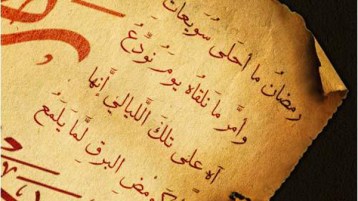 رمضانُ ما أحلى سويعات
وأمرَّ ما نلقاه يومُ نودِّعُ
آه على تلكَ الليالي أنها
ومضِ البرقِ لمَّا يَلمَعُ